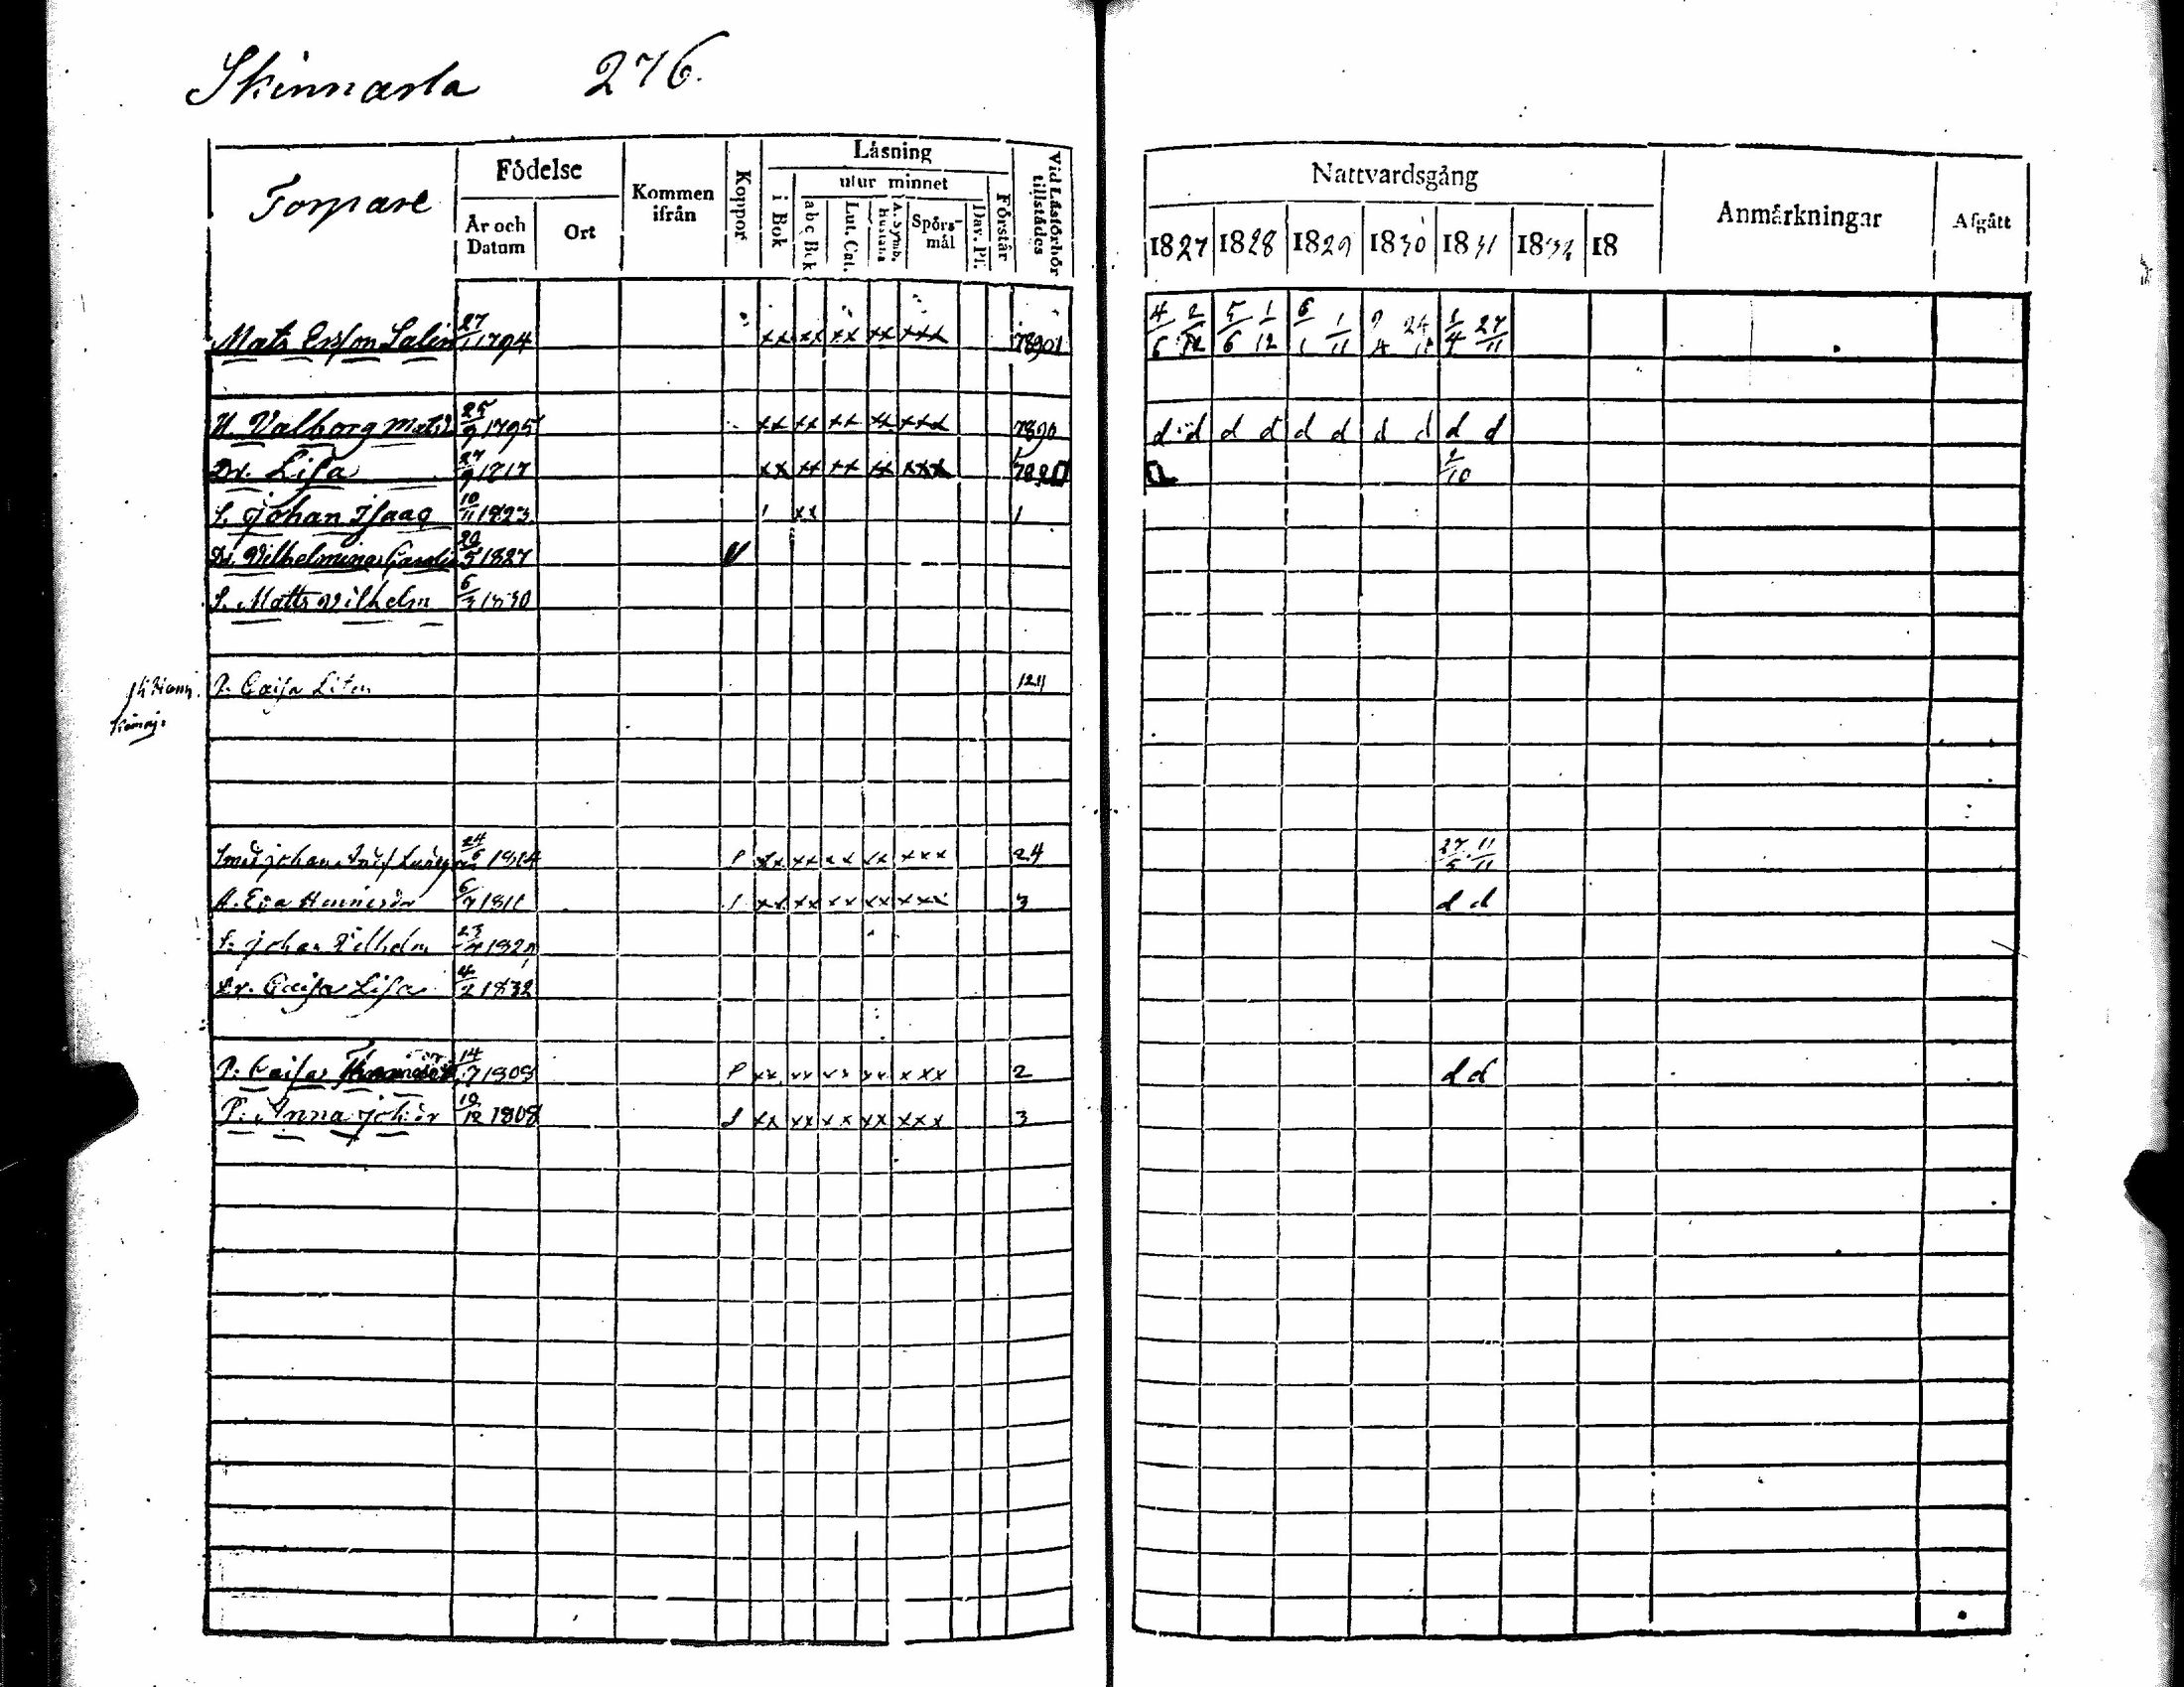 Skinnarla 276.
Torpare
Födelse
År och Datum
Ort
Kommen ifrån
Koppor
Låsning
i Bok
utur minnet
abc Bok
Lut. Cat.
A. Symb.
hustafla
Spörsmål
Dav. Ps.
Förstår
Vid Låsförhör tillstådes
Nattvardsgång
1827 1828 1829 1830 1831 1832 18
Anmärkningar
Afgått
Mats Ersson Salin 27/11 1794 xx xx xx xx xxx 78901 4/6 2/12 5/6 1/12 6/1 1/11 24 27/11
H. Valborg Matsd 25/9 1795 xx xx xx xx xxx 7890 d d d d d d d d d d
Dr. Lisa 27/9 1717 xx xx xx xx xxx 2/10
S. Johan Isaac 10/11 1823 xx 1
Dr. Vilhelmina Carolin 20/5 1827
S. Matts Vilhelm 6/3 1830
P. Caisa Liten 1211
Johan 24 xx xx xx xx xxx 24 27/5 11/11
H. Eva Henricsdr 6/7 1811 xx xx xx xx xxx 3 d d
S. Johan Vilhelm 23
Dr. Caisa Lisa 4/2 1832
P. Caisa 14/7 1808 P xx xx xx xx xxx 2 d d
P. Anna Johsdr 10/12 1808 xx xx xx xx xxx 3